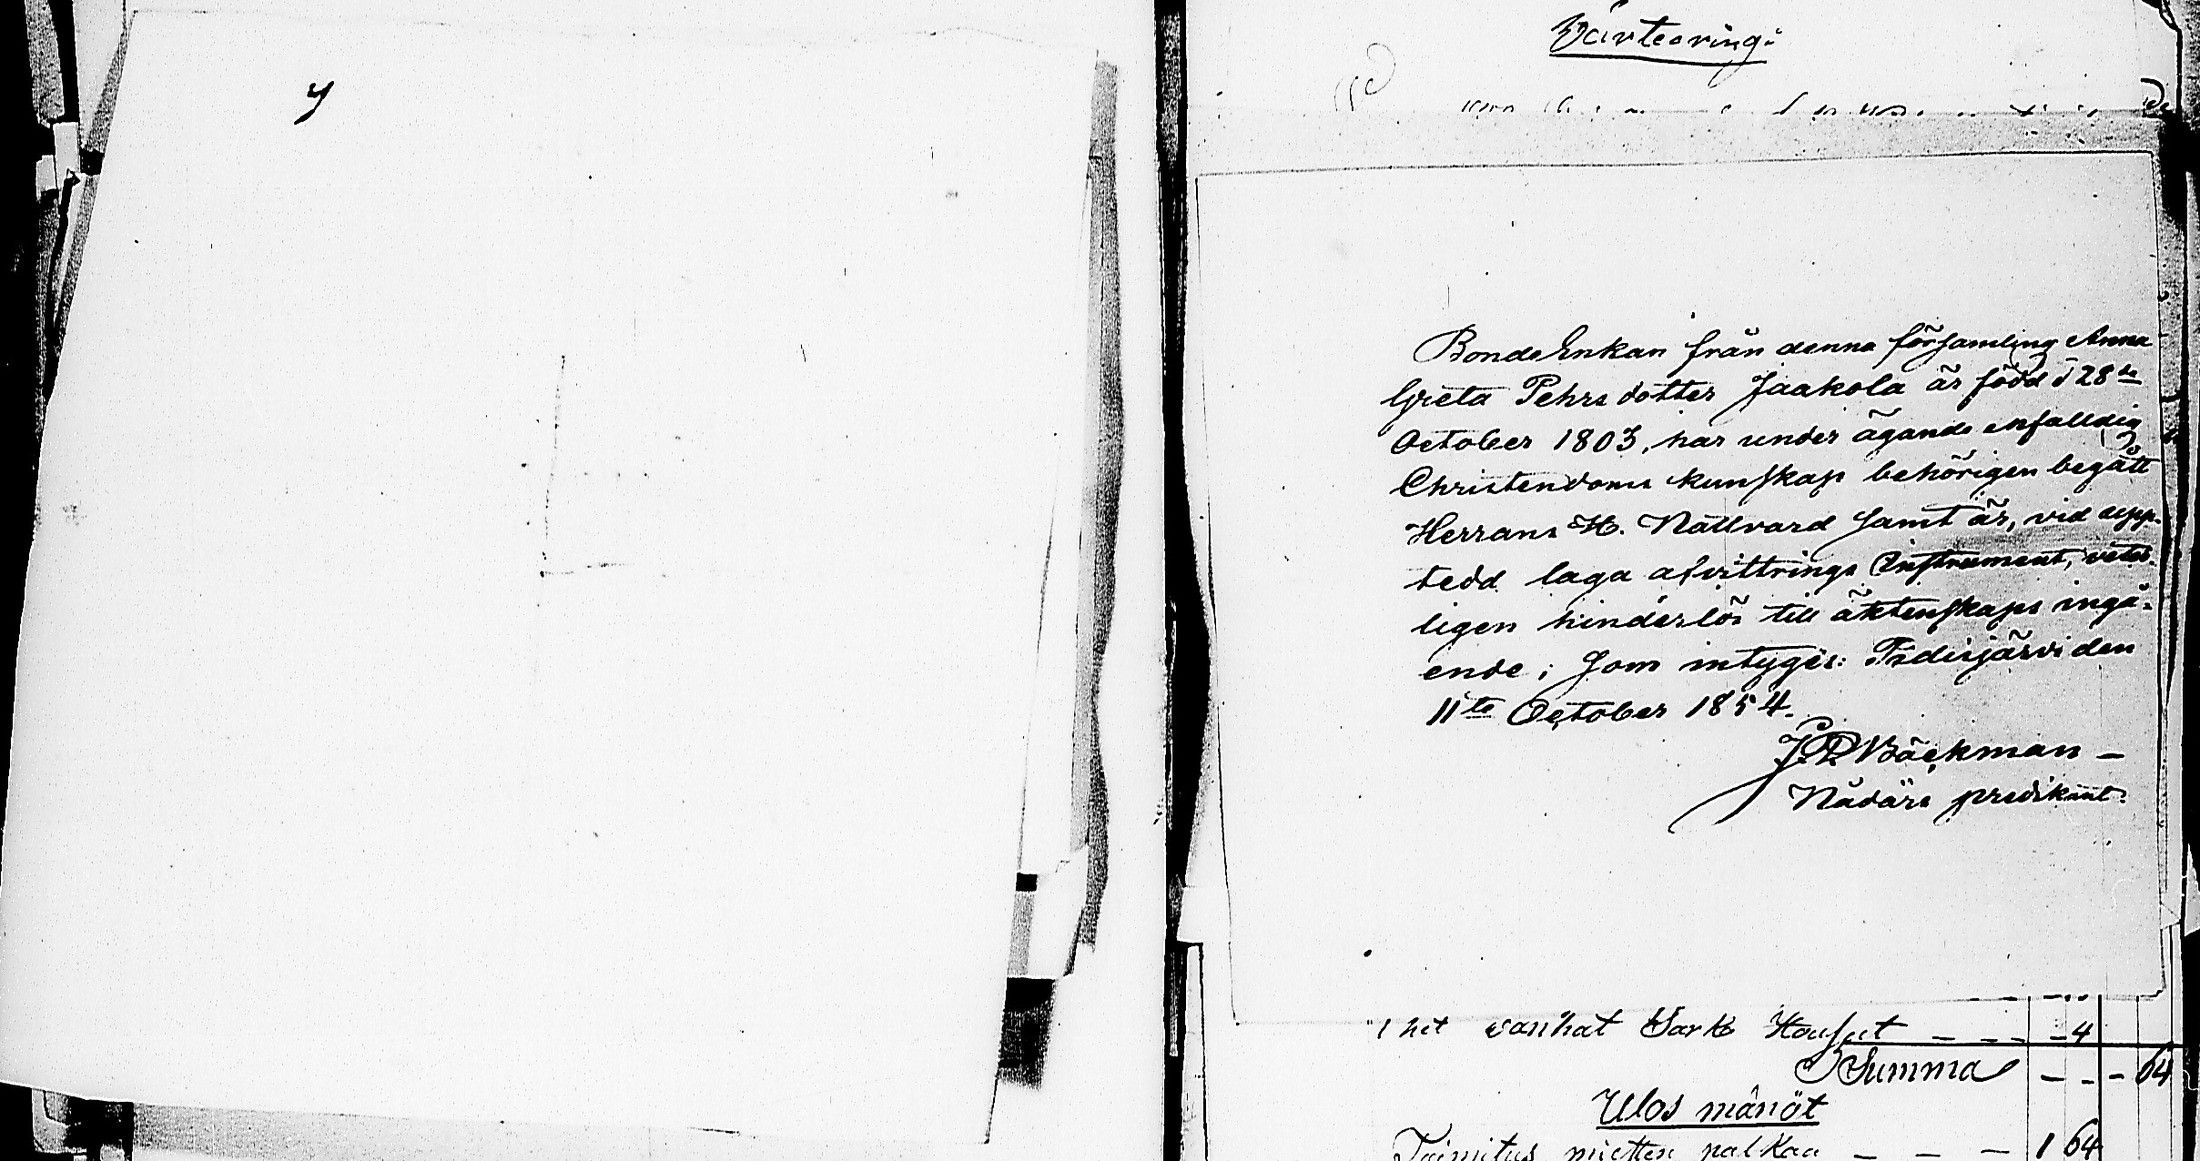 y
Värteering:
BondeEnkan från denna församling Anna
Greta Pehrsdotter Jaakola är född d 28de
October 1803, har under ägande enfalldig
Christendoms kunskap behörigen begått
Herrans H. Nattvard samt är, vid upp-
tedd laga afvittrings Instrument, veter-
ligen hinderlös till äktenskaps ingå-
ende; som intygis: Pidisjärvi den
11te October 1854.
J. P. Bäckman –
Nådårs predikant.
1 het vanhat Sark Housut – – – – 4
Summa – – – 64
Ulos mänöt
Toimitus miesten palkaa – – – 1 64